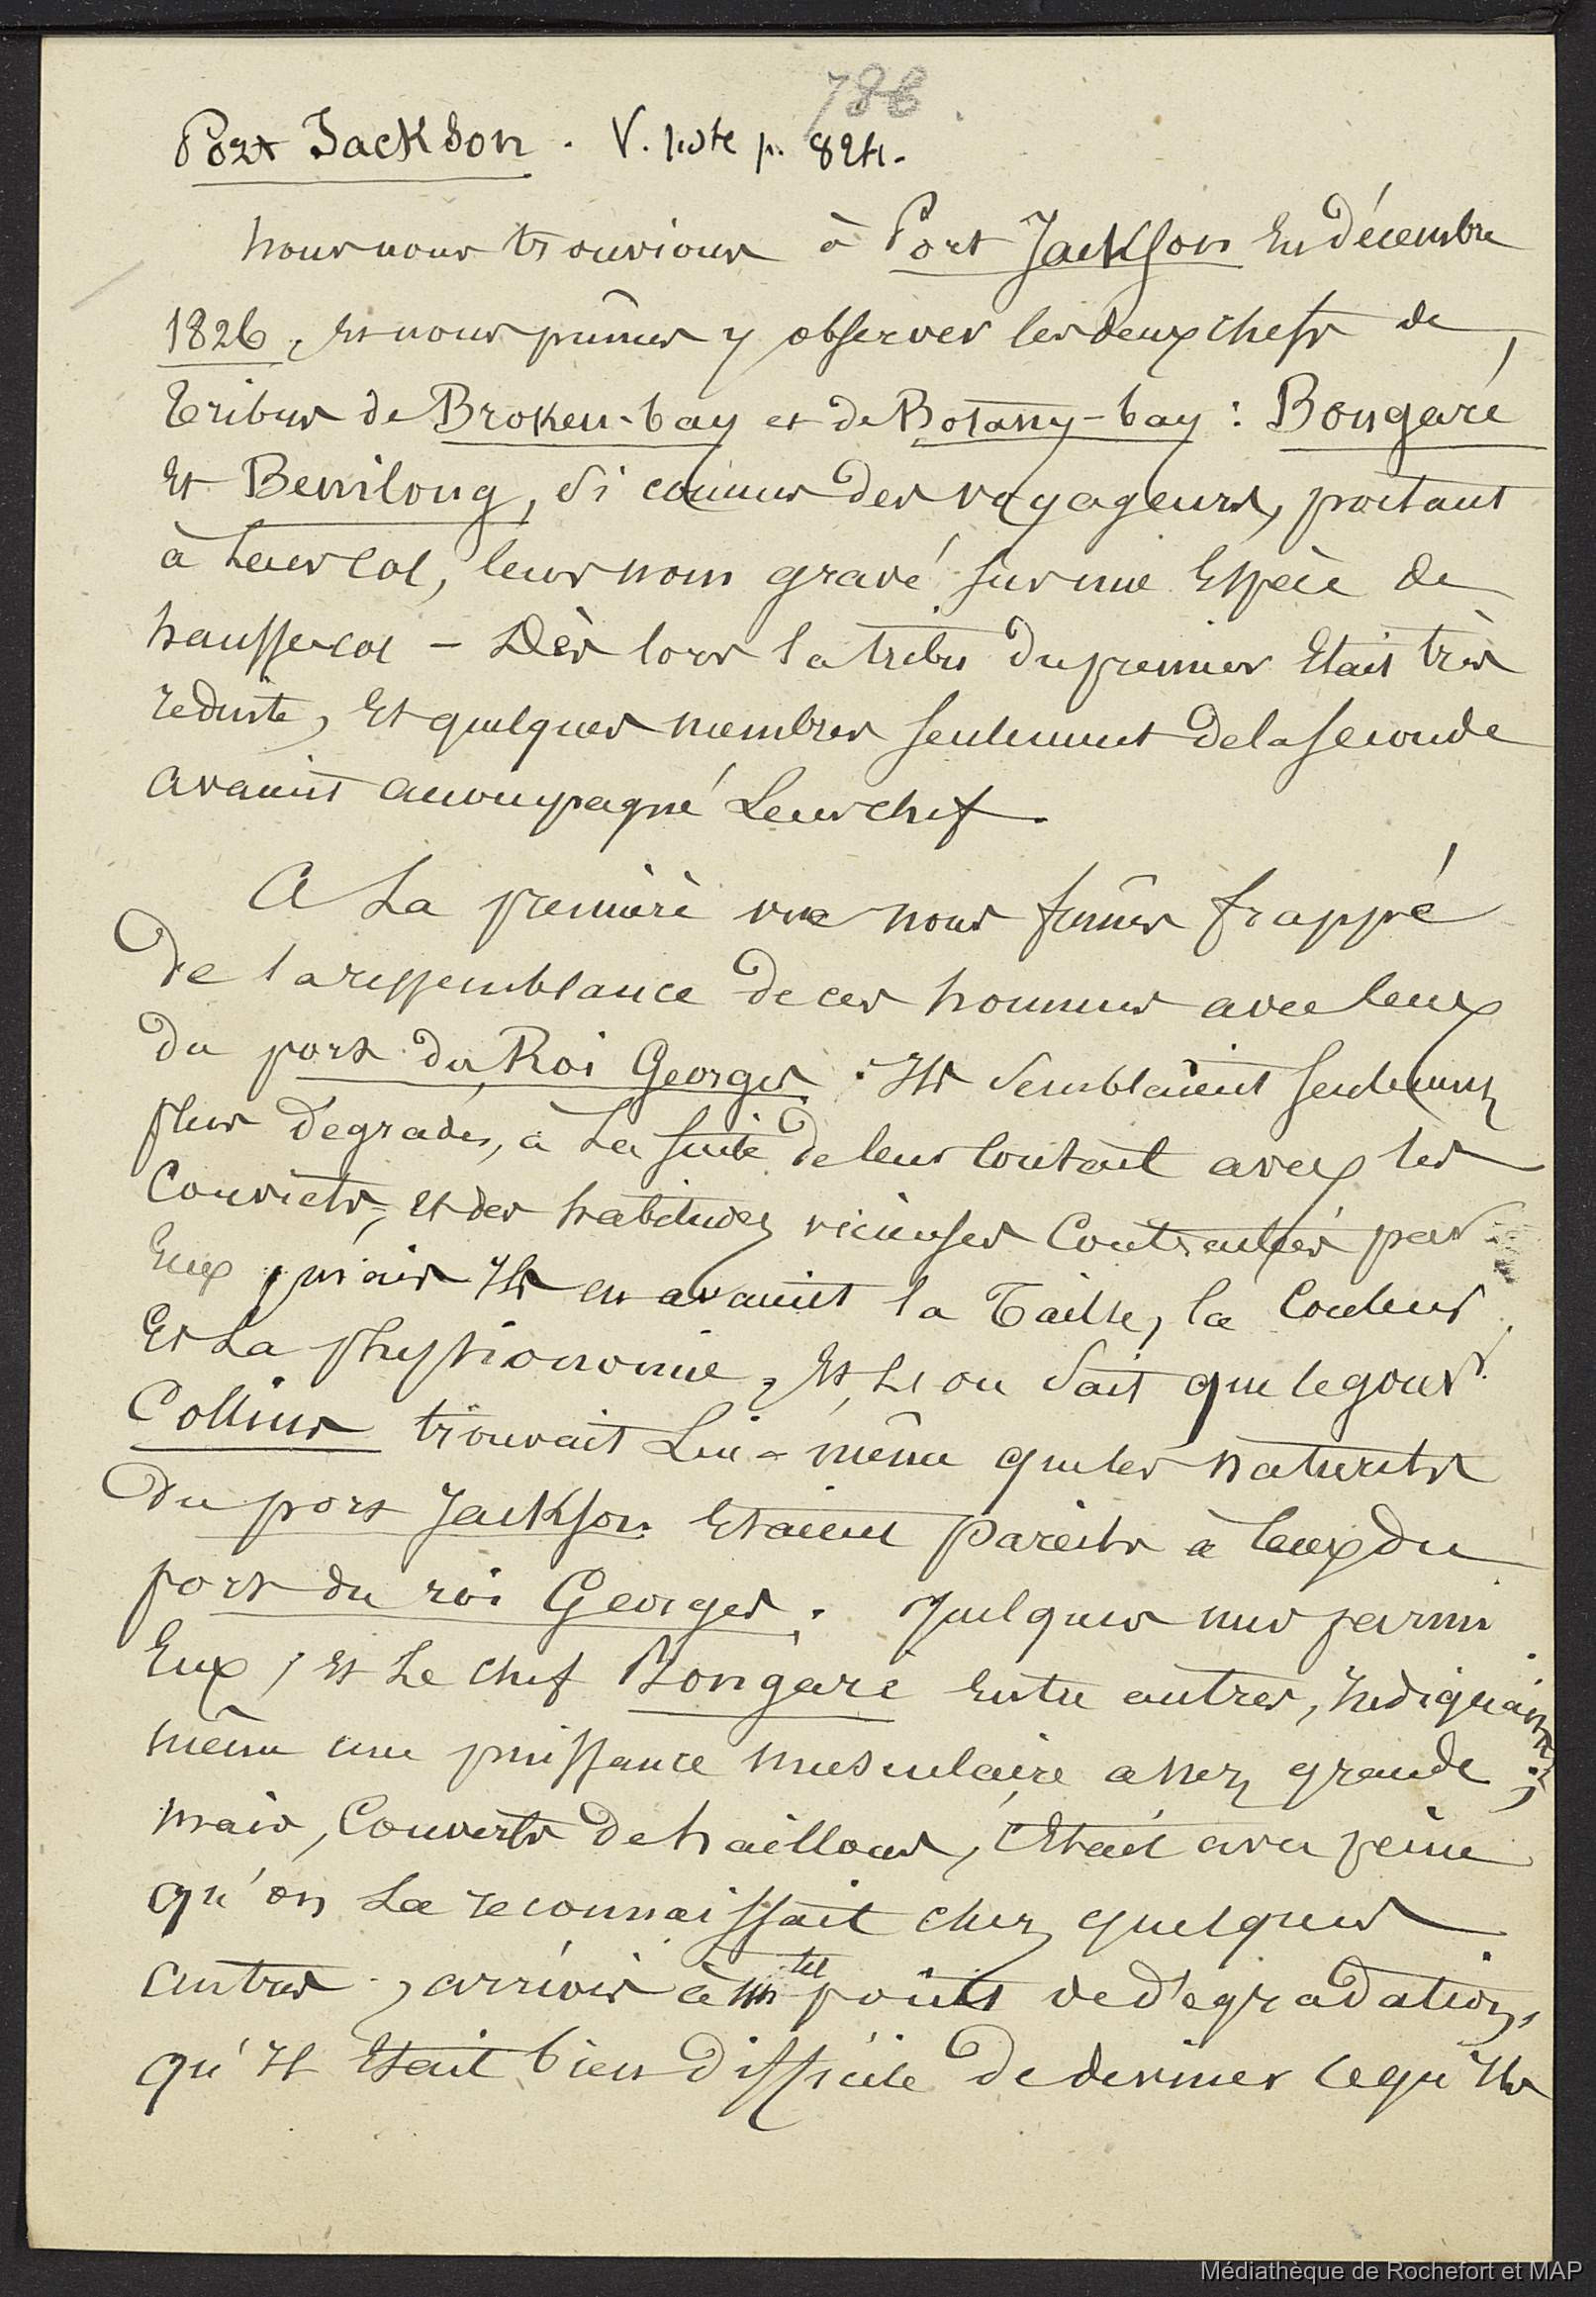 786.
Port Jackson. V. liste p. 824.
nous nous trouvions à Port Jackson en décembre
1826, et nous pûmes y observer les deux chefs de
tribus de Broken-bay et de Botany-bay : Bongaré
et Bennilong, si connus des voyageurs, portant
à leur col, leur nom gravé sur une espèce de
hausse-col – Dès lors la tribu du premier était très
réduite, et quelques membres seulement de la seconde
avaient accompagné leur chef.
A la première vue nous fûmes frappé
de la ressemblance de ces hommes avec ceux
du port du Roi Georges. Ils semblaient seulement
plus dégradés, à la suite de leur contact avec les
convicts, et des habitudes vicieuses contractées par
eux, mais ils en avaient la taille, la couleur
et la physionomie, et l'on sait que le gouvr.
Collins trouvait lui-même que les naturels
du port Jackson étaient pareils à ceux du
port du roi Georges. Quelques uns parmi
eux, et le chef Bongaré entre autres, indiquaient
même une puissance musculaire assez grande ;
mais, couverts de haillons, c'était avec peine
qu'on la reconnaissait chez quelques
autres, arrivés à tel point de dégradation,
qu'il était bien difficile de deviner ce qu'ils
Médiathèque de Rochefort et MAP